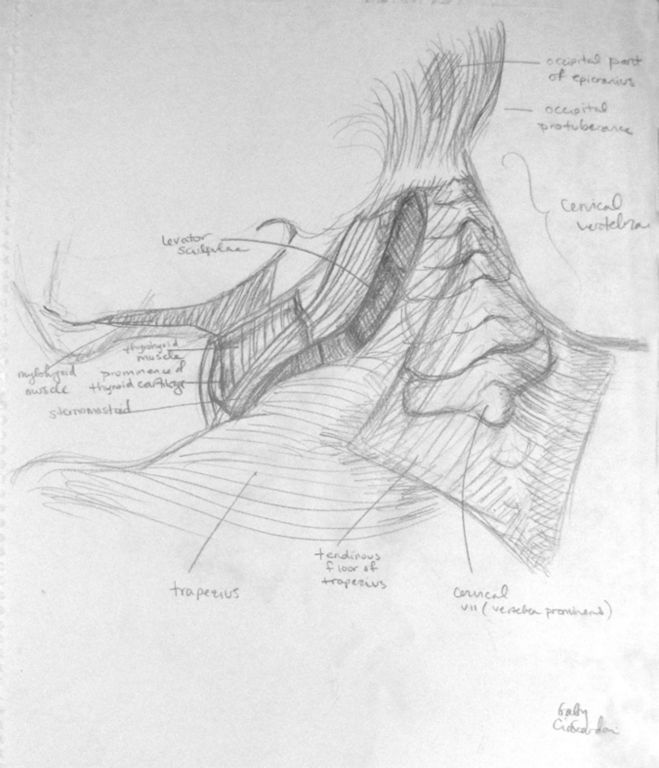 occipital part
of epicranius
occipital
protuberance
Cervical
vertebra
levator
scapulae
thyrohyoid
muscle
prominence of
thyroid cartilage
mylohyoid
muscle
sternomastoid
trapezius
tendinous
floor of
trapezius
Cervical
VII (vertebra prominens)
Gaby